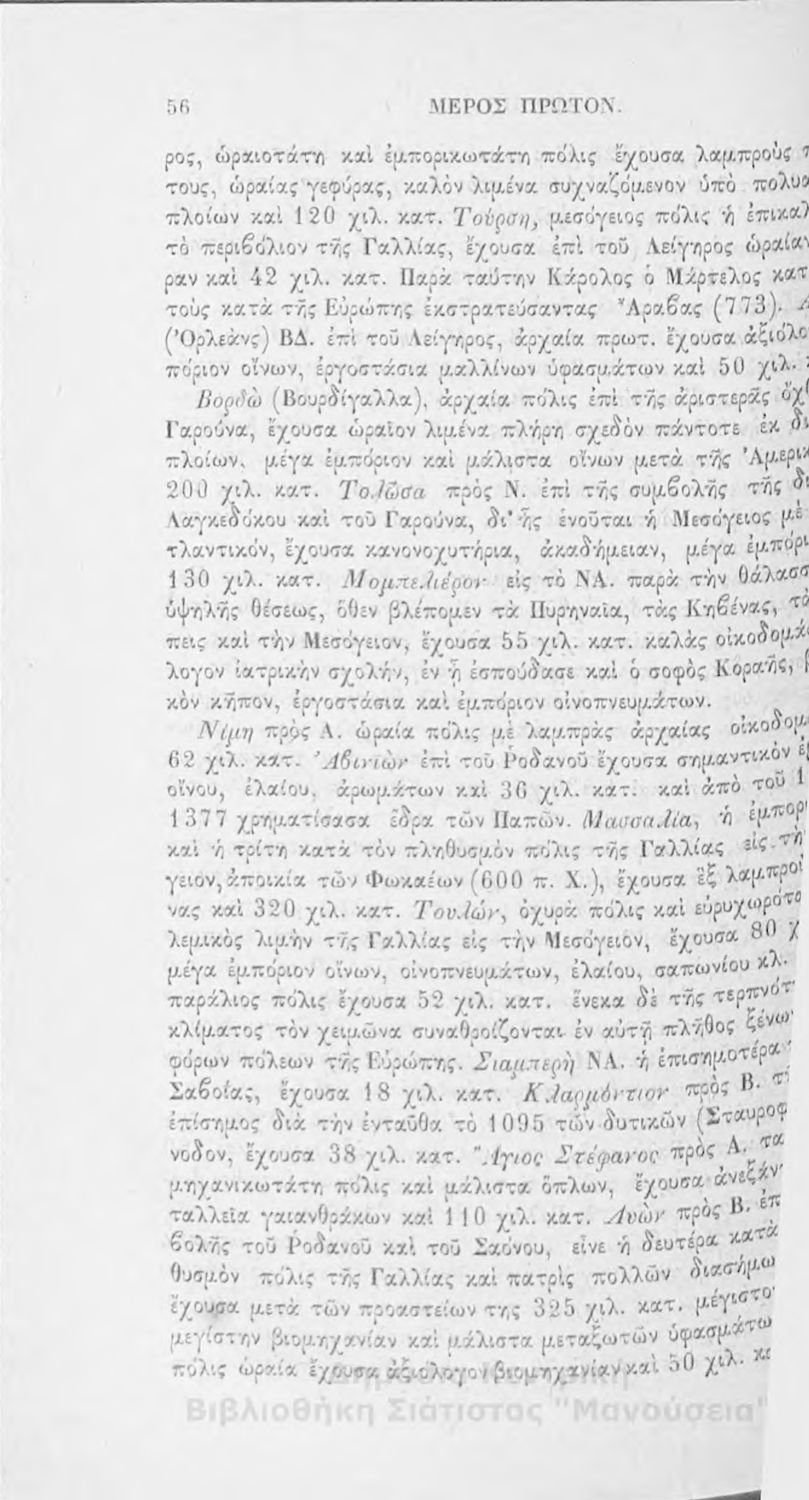 56 ΜΕΡΟΣ ΠΡΩΤΟΝ.
ρος, ὡραιοτάτη καὶ ἐμπορικωτάτη πόλις ἔχουσα λαμπροὺς
τους, ὡραίας γεφύρας, καλὸν λιμένα συχναζόμενον ὑπὸ πολυα
πλοίων καὶ 120 χιλ. κατ. Τούρση, μεσόγειος πόλις ἡ ἐπικαλ
τὸ περιβόλιον τῆς Γαλλίας, ἔχουσα ἐπὶ τοῦ Λείγηρος ὡραίαν
ραν καὶ 42 χιλ. κατ. Παρὰ ταύτην Κάρολος ὁ Μάρτελος κατ
τοὺς κατὰ τῆς Εὐρώπης ἐκστρατεύσαντας Ἄραβας (773).
(Ὀρλεὰνς) ΒΔ. ἐπὶ τοῦ Λείγηρος, ἀρχαία πρωτ. ἔχουσα ἀξιόλο
πόριον οἴνων, ἐργοστάσια μαλλίνων ὑφασμάτων καὶ 50 χιλ.
Βορδὼ (Βουρδίγαλλα), ἀρχαία πόλις ἐπὶ τῆς ἀριστερᾶς ὄχ
Γαρούνα, ἔχουσα ὡραῖον λιμένα πλήρη σχεδὸν πάντοτε ἐκ δι
πλοίων, μέγα ἐμπόριον καὶ μάλιστα οἴνων μετὰ τῆς Ἀμερικ
200 χιλ. κατ. Τολῶσα πρὸς Ν. ἐπὶ τῆς συμβολῆς τῆς δι
Λαγκεδόκου καὶ τοῦ Γαρούνα, δι' ἧς ἑνοῦται ἡ Μεσόγειος μὲ
τλαντικόν, ἔχουσα κανονοχυτήρια, ἀκαδήμειαν, μέγα ἐμπόρι
130 χιλ. κατ. Μομπελιέρον εἰς τὸ ΝΑ. παρὰ τὴν θάλασσ
ὑψηλῆς θέσεως, ὅθεν βλέπομεν τὰ Πυρηναῖα, τὰς Κηβένας, τὰ
πεις καὶ τὴν Μεσόγειον, ἔχουσα 55 χιλ. κατ. καλὰς οἰκοδομὰ
λογον ἰατρικὴν σχολήν, ἐν ᾗ ἐσπούδασε καὶ ὁ σοφὸς Κοραῆς,
κὸν κῆπον, ἐργοστάσια καὶ ἐμπόριον οἰνοπνευμάτων.
Νίμη πρὸς Α. ὡραία πόλις μὲ λαμπρὰς ἀρχαίας οἰκοδομ
62 χιλ. κατ. Ἀβινιὼν ἐπὶ τοῦ Ῥοδανοῦ ἔχουσα σημαντικὸν ἐ
οἴνου, ἐλαίου, ἀρωμάτων καὶ 36 χιλ. κατ. καὶ ἀπὸ τοῦ 1
1377 χρηματίσασα ἕδρα τῶν Παπῶν. Μασσαλία, ἡ ἐμπορι
καὶ ἡ τρίτη κατὰ τὸν πληθυσμὸν πόλις τῆς Γαλλίας εἰς τὴ
γειον, ἀποικία τῶν Φωκαέων (600 π. Χ.), ἔχουσα ἓξ λαμπροὺ
νας καὶ 320 χιλ. κατ. Τουλών, ὀχυρὰ πόλις καὶ εὐρυχωρότα
λεμικὸς λιμὴν τῆς Γαλλίας εἰς τὴν Μεσόγειον, ἔχουσα 80 χ
μέγα ἐμπόριον οἴνων, οἰνοπνευμάτων, ἐλαίου, σαπωνίου κλ.
παράλιος πόλις ἔχουσα 52 χιλ. κατ. ἕνεκα δὲ τῆς τερπνότ
κλίματος τὸν χειμῶνα συναθροίζονται ἐν αὐτῇ πλῆθος ξένω
φόρων πόλεων τῆς Εὐρώπης. Σιαμπερὴ ΝΑ. ἡ ἐπισημοτέρα
Σαβοΐας, ἔχουσα 18 χιλ. κατ. Κλαρμόντιον πρὸς Β. τ
ἐπίσημος διὰ τὴν ἐνταῦθα τὸ 1095 τῶν δυτικῶν (Σταυροφ
νοδον, ἔχουσα 38 χιλ. κατ. Ἅγιος Στέφανος πρὸς Α. τα
μηχανικωτάτη πόλις καὶ μάλιστα ὅπλων, ἔχουσα ἀνεξάν
ταλλεῖα γαιανθράκων καὶ 110 χιλ. κατ. Λυὼν πρὸς Β. ἐπ
βολῆς τοῦ Ῥοδανοῦ καὶ τοῦ Σαόνου, εἶνε ἡ δευτέρα κατὰ
θυσμὸν πόλις τῆς Γαλλίας καὶ πατρὶς πολλῶν διασήμω
ἔχουσα μετὰ τῶν προαστείων της 325 χιλ. κατ. μέγιστο
μεγίστην βιομηχανίαν καὶ μάλιστα μεταξωτῶν ὑφασμάτω
πόλις ὡραία ἔχουσα ἀξιόλογον βιομηχανίαν καὶ 50 χιλ. κα
Βιβλιοθήκη Σιάτιστας "Μανούσεια"